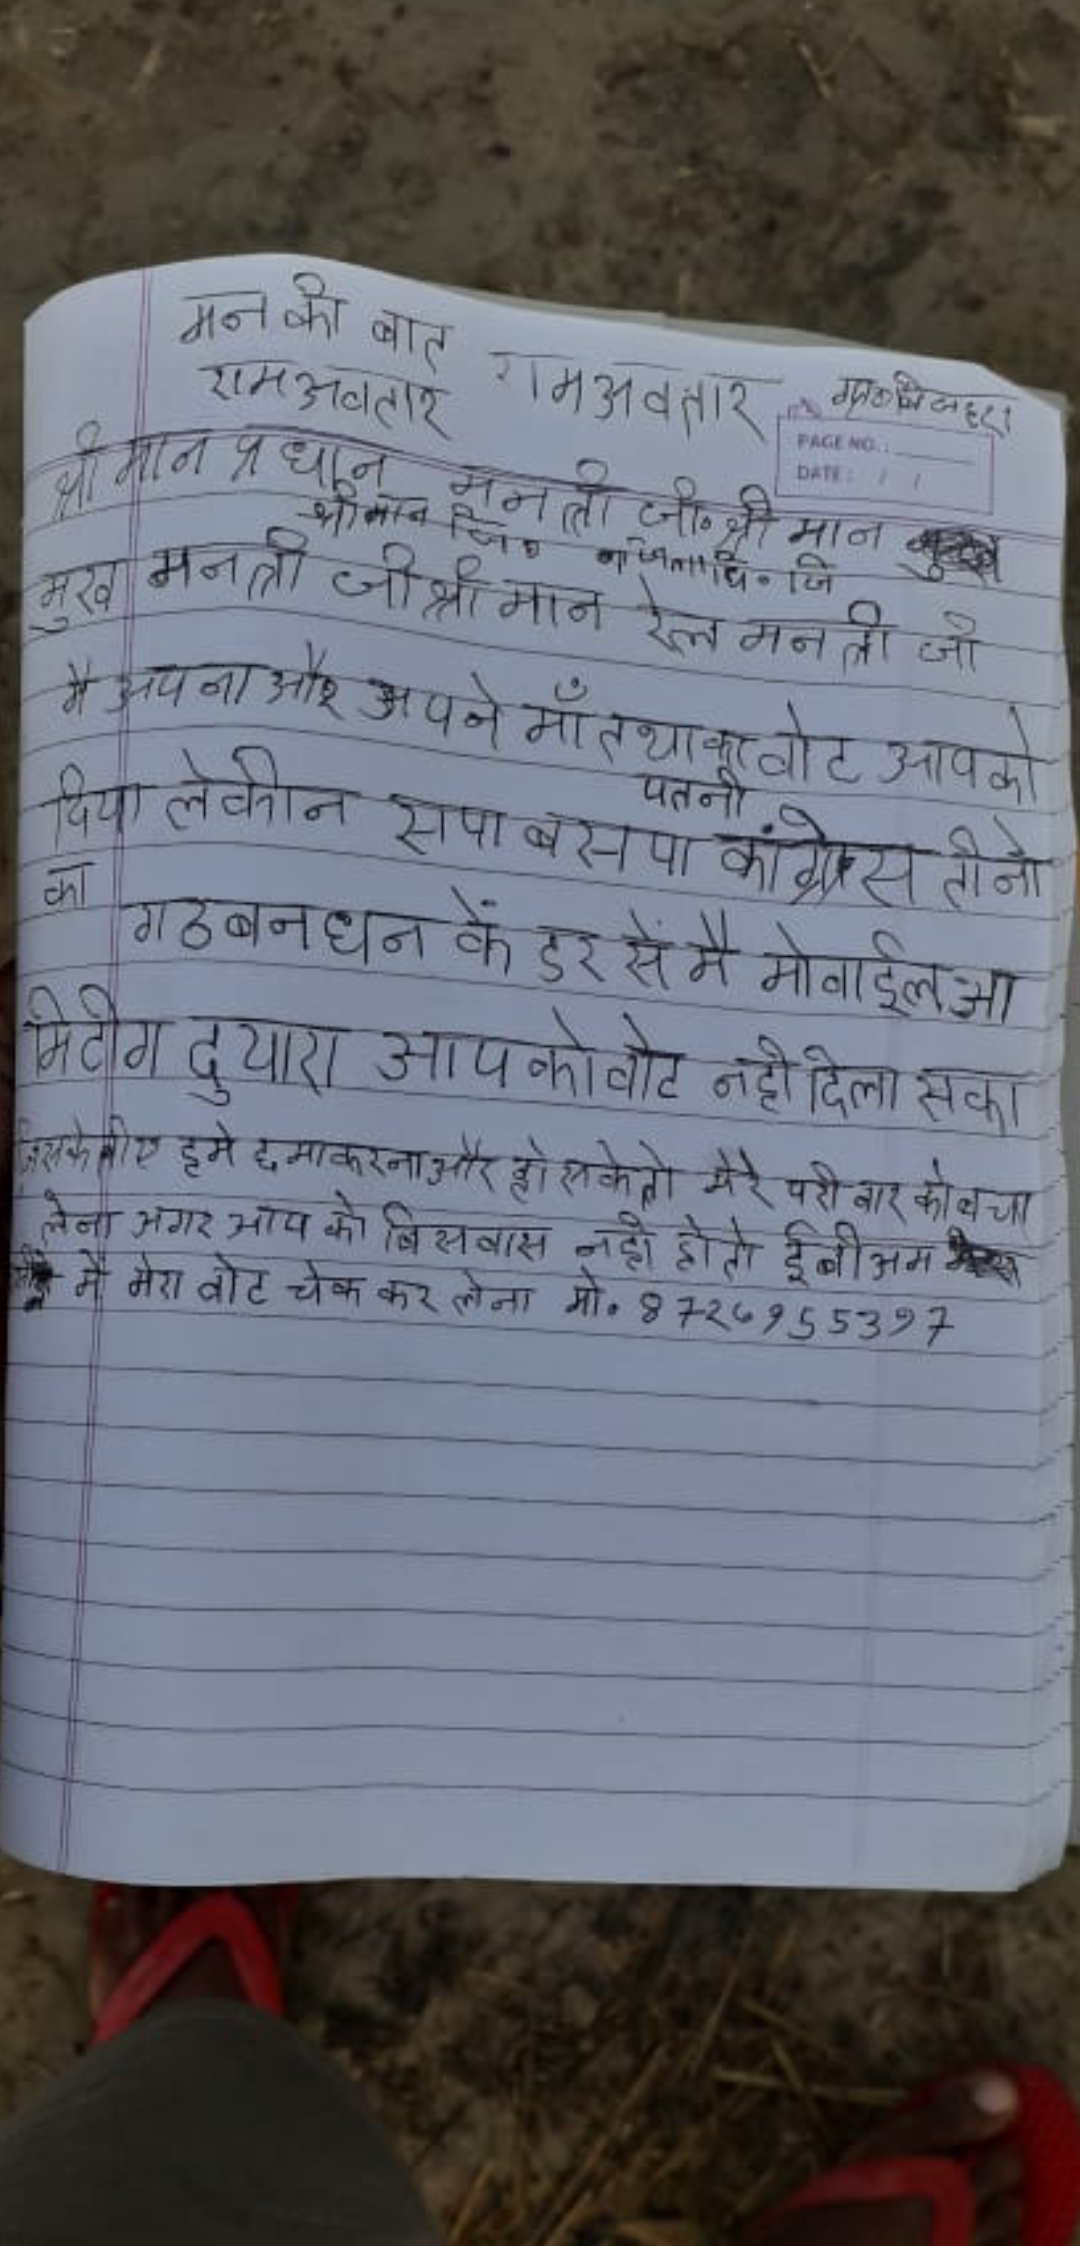 मन की बात
रामअवतार रामअवतार
PAGE NO.:
DATE: / /
श्री मान प्रधान मनत्री जी. श्री मान
श्रीमान जि॰
मुख मनत्री जी श्री मान रेल मनत्री जी
मै अपना और अपने माँ तथा का वोट आपको
पतनी
दिया लेकीन सपा बसपा कांग्रेस तीनो
का
गठबनधन कें डर सें मै मोवाईल आ
मिटींग दुयारा आप को वोट नही दिला सका
जिसके लीए हमे छमा करना और हो सके तो मेरे परी वार को बचा
लेना अगर आप को बिसवास नही हो तो ईबीअम
में मेरा वोट चेक कर लेना मो. 8726955397